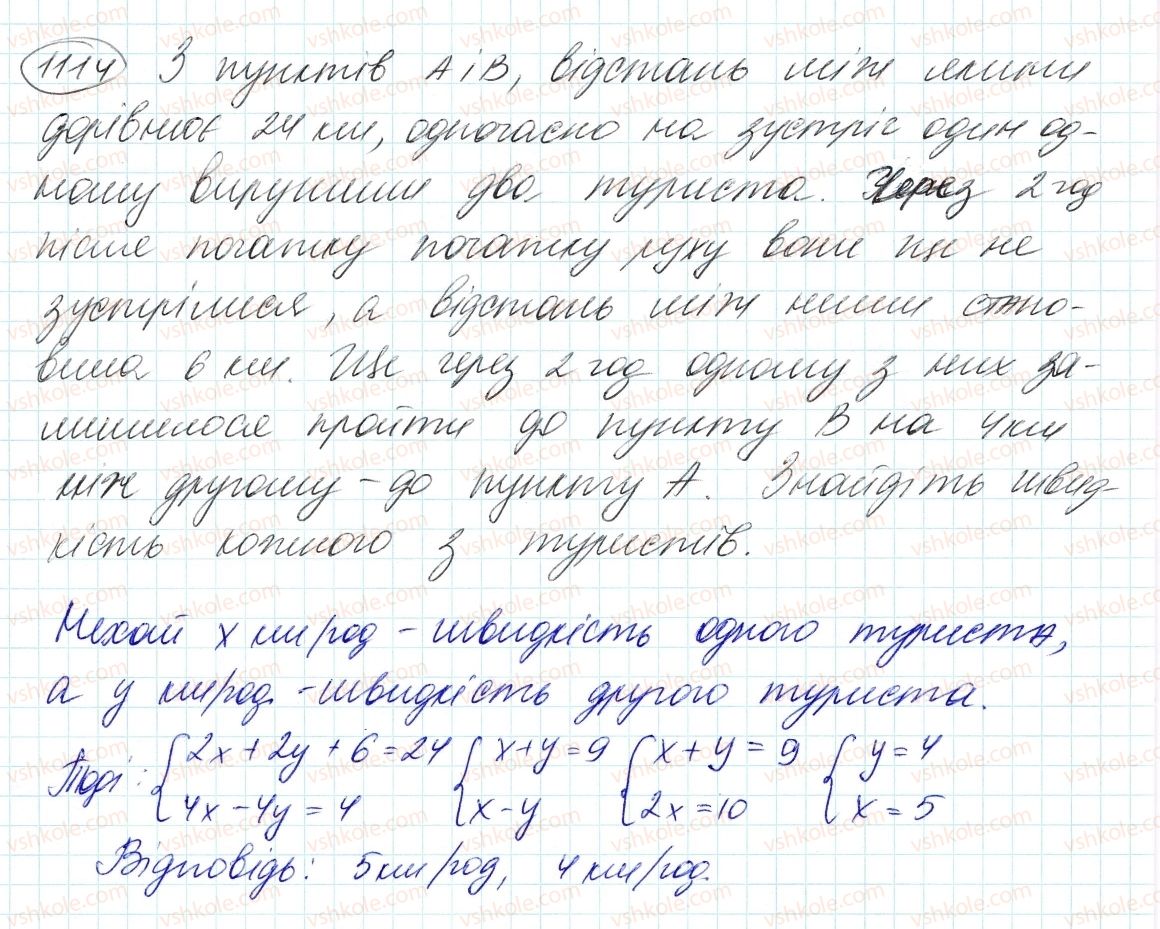 1114 З пунктів А і В, відстань між якими
дорівнює 24 км, одночасно на зустріч один од-
ному вирушили два туриста. Через 2 год
після початку початку руху вони ще не
зустрілися, а відстань між ними стано-
вила 6 км. Ще через 2 год одному з них за-
лишилося пройти до пункту В на 4км
ніж другому - до пункту А. Знайдіть швид-
кість кожного з туристів.
Нехай х км/год - швидкість одного туриста,
а у км/год - швидкість другого туриста.
Тоді: { 2x + 2y + 6 = 24 { x + y = 9 { x + y = 9 { y = 4
4x - 4y = 4 x - y 2x = 10 x = 5
Відповідь: 5км/год, 4 км/год.